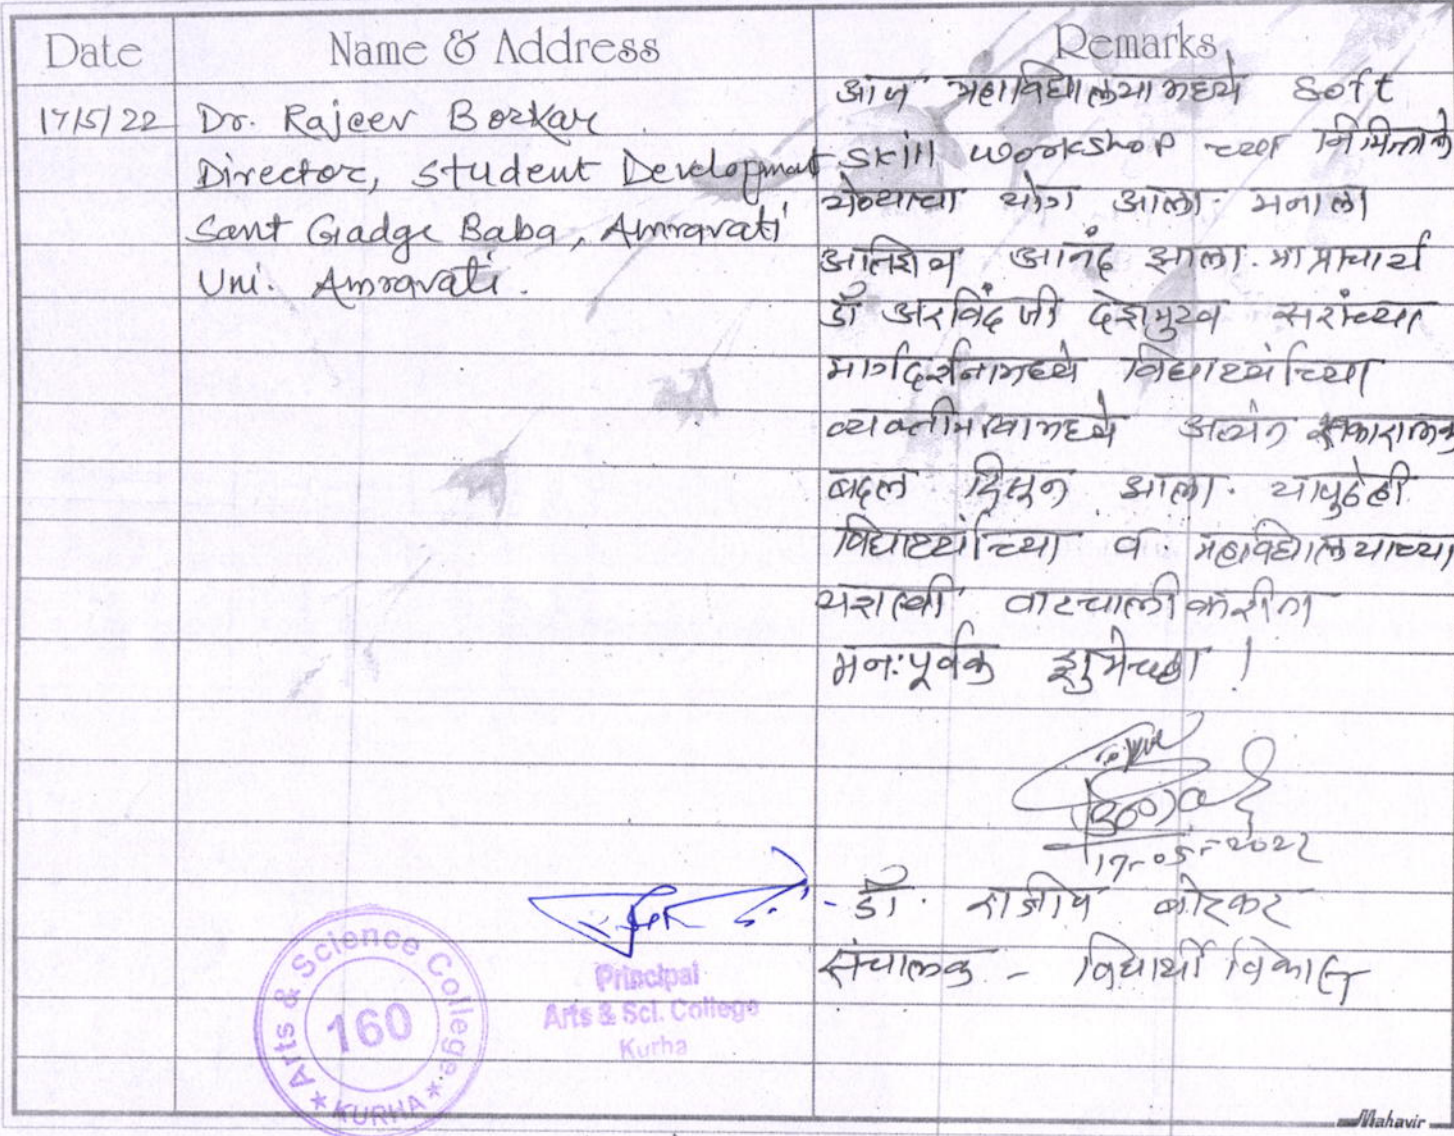 Date Name & Address Remarks
17/5/22 Dr. Rajeev Borkar
Director, Student Development
Sant Gadge Baba, Amravati
Uni. Amravati.
आज महाविद्यालयामध्ये Soft
Skill workshop च्या निमित्ताने
येण्याचा योग आला. मनाला
अतिशय आनंद झाला. मा प्राचार्य
डॉ अरविंद जी देशमुख सरांच्या
मार्गदर्शनामध्ये विद्यार्थ्यांच्या
व्यक्तीमत्वामध्ये अत्यंत सकारात्मक
बदल दिसून आला. यापुढेही
विद्यार्थ्यांच्या व महाविद्यालयाच्या
यशस्वी वाटचाली करीता
मनःपूर्वक शुभेच्छा !
17-05-2022
- डॉ. राजीव बोरकर
संचालक - विद्यार्थी विकास
Principal
Arts & Sci. College
Kurha
Arts & Science College
160
* KURHA *
Mahavir